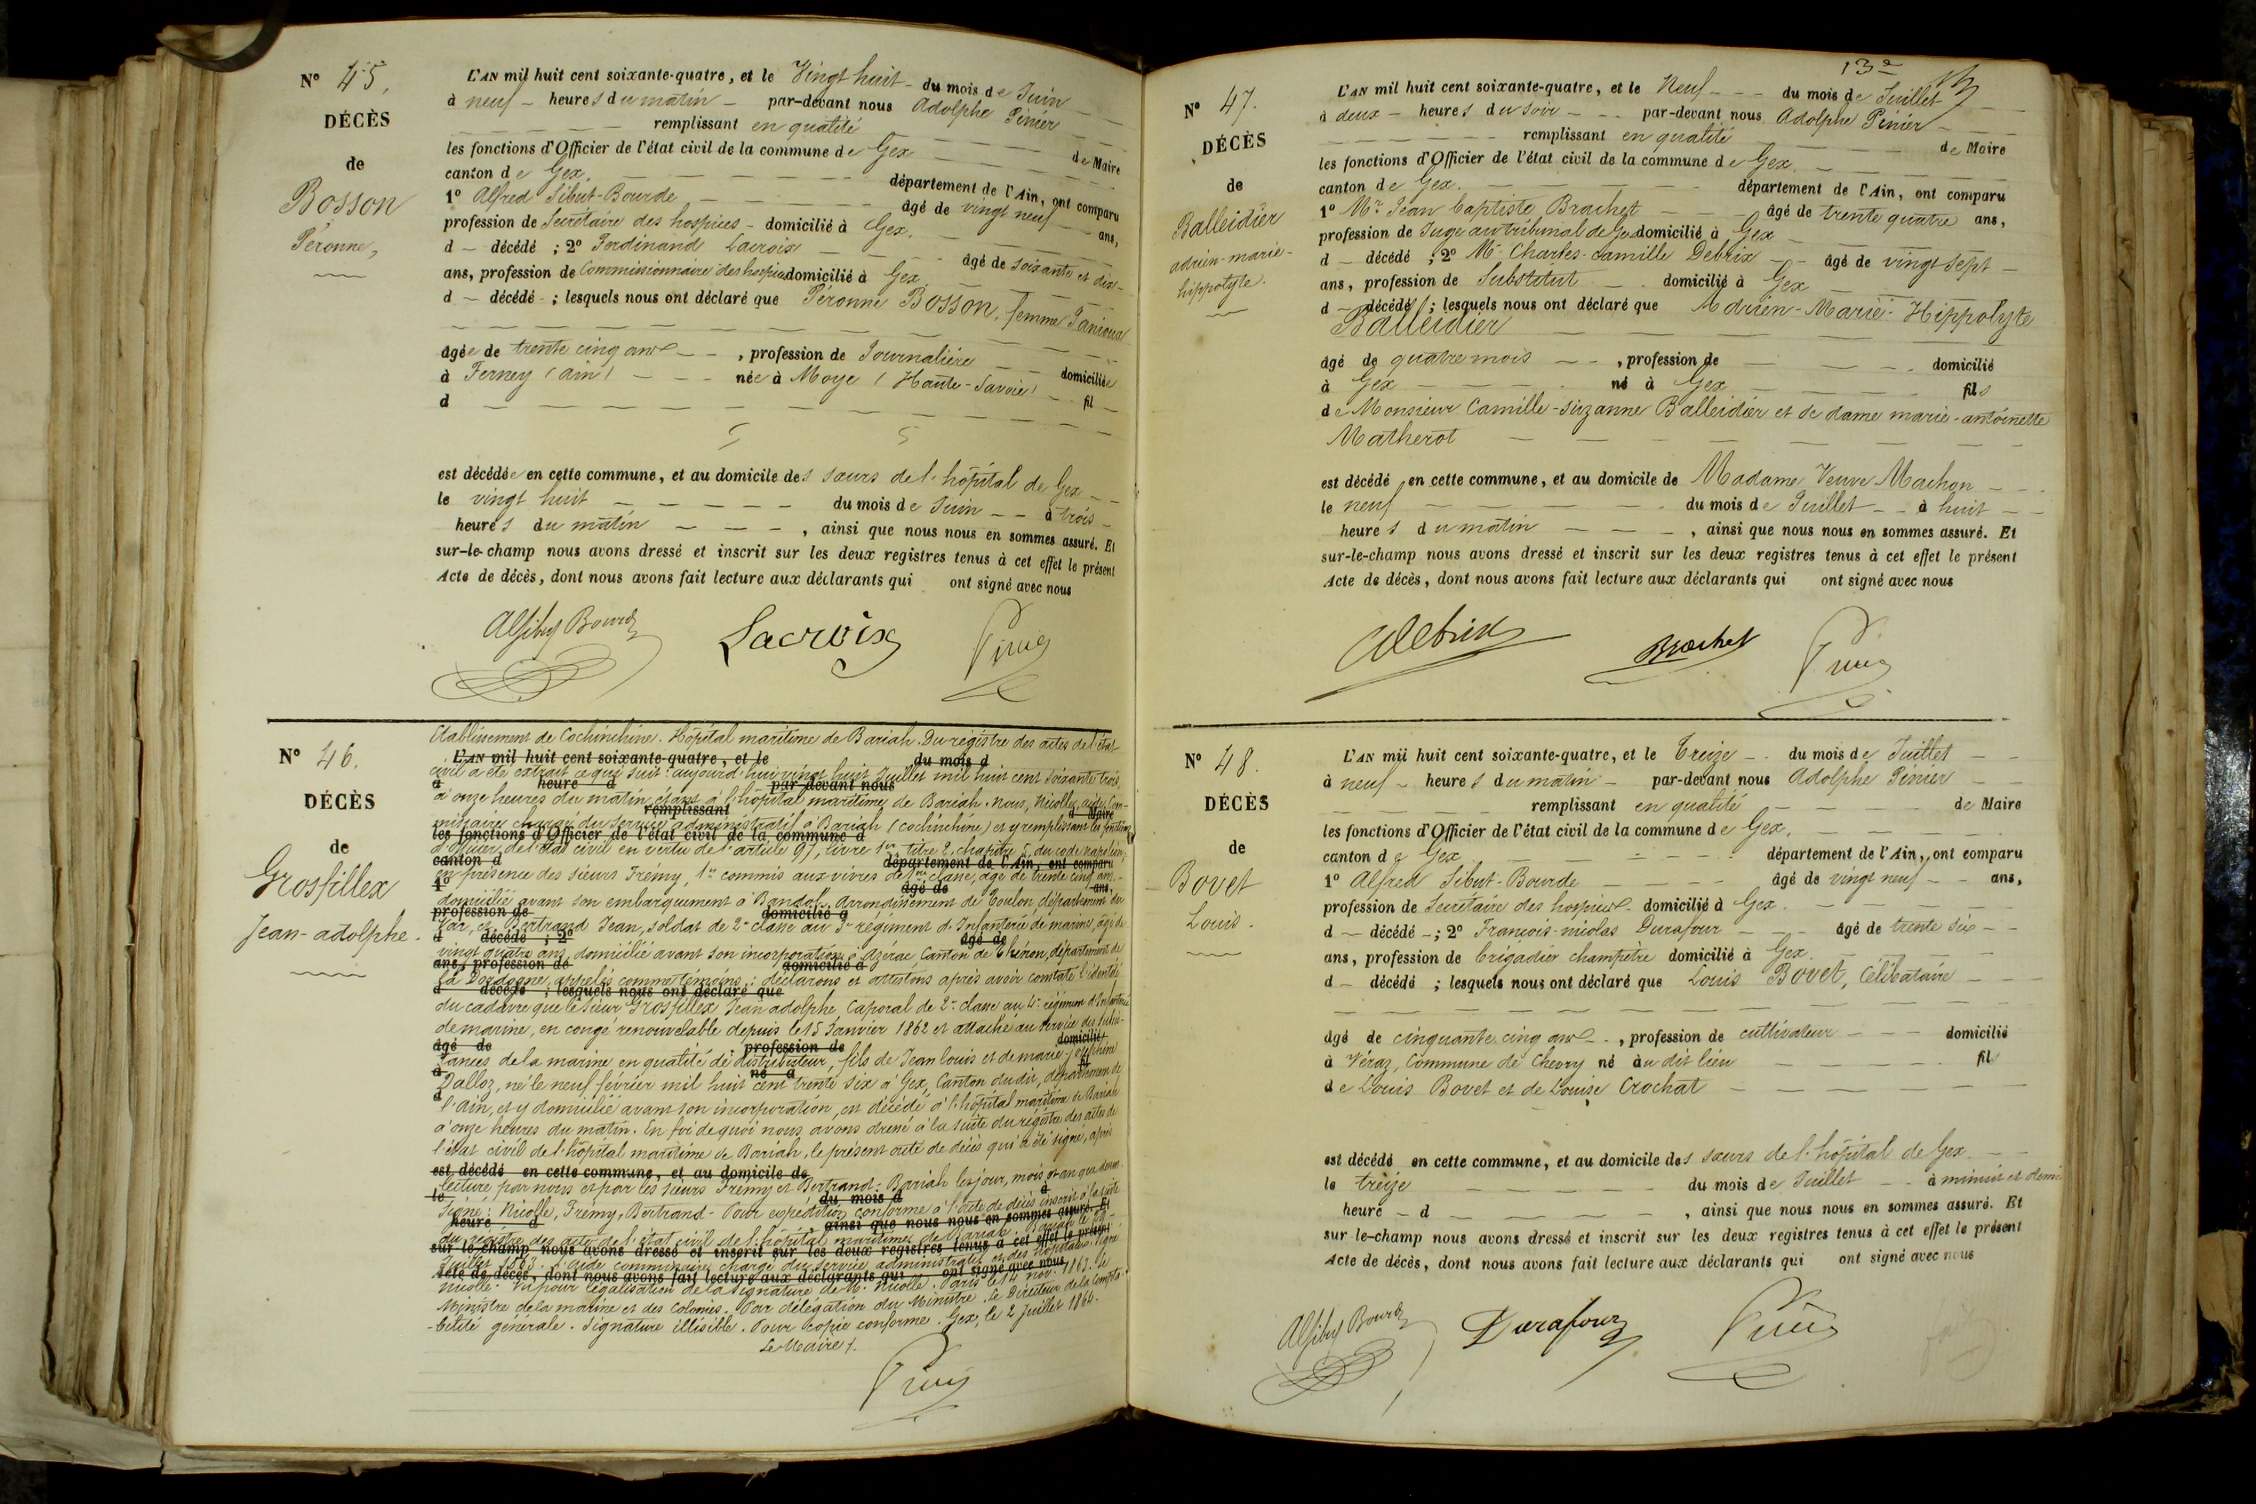 N° 45.
DÉCÈS
de
Bosson
Péronne,
L'AN mil huit cent soixante-quatre, et le Vingt huit du mois de Juin
à neuf heures du matin par-devant nous Adolphe Pénier
remplissant en qualité de Maire
les fonctions d'Officier de l'état civil de la commune de Gex
canton de Gex. département de l'Ain, ont comparu
1° Alfred Sibut-Bourde âgé de vingt neuf ans,
profession de Secrétaire des hospices domicilié à Gex.
d décédé ; 2° Ferdinand Lacroix âgé de soixante et dix
ans, profession de Commissionnaire des hospices domicilié à Gex
d décédé ; lesquels nous ont déclaré que Péronne Bosson, femme
âgée de trente cinq ans , profession de Journalière domiciliée
à Ferney (ain) née à Moye (Haute-Savoie) fil
d
est décédée en cette commune, et au domicile des sœurs de l'hôpital de Gex
le vingt huit du mois de Juin à trois
heures du matin , ainsi que nous nous en sommes assuré. Et
sur-le-champ nous avons dressé et inscrit sur les deux registres tenus à cet effet le présent
Acte de décès, dont nous avons fait lecture aux déclarants qui ont signé avec nous
Alf Sibut Bourde Lacroix Pénier
N° 46.
DÉCÈS
de
Grosfillex
Jean-adolphe.
Etablissement de Cochinchine. Hôpital maritime de Bariah. Du registre des actes de l'état
L'AN mil huit cent soixante-quatre, et le du mois d
civil a été extrait ce qui suit : aujourd'hui vingt huit Juillet mil huit cent soixante trois,
à heure d par-devant nous
à onze heures du matin, étant à l'hôpital maritime de Bariah. Nous, Nicolle, aide-Com-
remplissant d Maire
missaire chargé du service administratif à Bariah (Cochinchine) et y remplissant les fonctions
les fonctions d'Officier de l'état civil de la commune d
d'officier de l'état civil en vertu de l'article 97, livre 1er titre 2, chapitre 5, du code napoléon,
canton d département de l'Ain, ont comparu
en présence des sieurs Frémy, 1er commis aux vivres de 1ère classe, âgé de trente cinq ans,
1° âgé de ans,
domicilié avant son embarquement à Bandol, Arrondissement de Toulon, département du
profession de domicilié à
Var, et Bertrand Jean, soldat de 2e classe au 3e régiment d'Infanterie de marine, âgé de
d décédé ; 2° âgé de
vingt quatre ans, domicilié avant son incorporation à Azérac, Canton de Thénon, département de
ans, profession de domicilié à
la Dordogne, appelés comme témoins ; déclarons et attestons après avoir constaté l'identité
d décédé ; lesquels nous ont déclaré que
du cadavre que le sieur Grosfillex Jean adolphe, Caporal de 2e classe au 4e régiment d'Infanterie
de marine, en congé renouvelable depuis le 15 Janvier 1862 et attaché au service des subsis-
âgé de profession de domicilié
tances de la marine en qualité de distributeur, fils de Jean louis et de marie-josephine
à né à fil
Dalloz, né le neuf février mil huit cent trente six à Gex, Canton dudit, département de
d
l'Ain, et y domicilié avant son incorporation, est décédé à l'hôpital maritime de Bariah
à onze heures du matin. En foi de quoi nous avons dressé à la suite du registre des actes de
l'état civil de l'hôpital maritime de Bariah, le présent acte de décès qui a été signé, après
est décédé en cette commune, et au domicile de
lecture par nous et par les sieurs Frémy et Bertrand. Bariah les jour, mois et an que dessus.
le du mois d à
Signé : Nicolle, Frémy, Bertrand - Pour expédition conforme à l'acte de décès inscrit à la suite
heure d ainsi que nous nous en sommes assuré. Et
du registre des actes de l'état civil de l'hôpital maritime de Bariah. Bariah le
sur-le-champ nous avons dressé et inscrit sur les deux registres tenus à cet effet le présent
Juillet 1863. L'aide commissaire chargé du service administratif et des hôpitaux. Signé
Acte de décès, dont nous avons fait lecture aux déclarants qui ont signé avec nous
Nicolle. Vu pour légalisation de la signature de M. Nicolle. Paris le 14 nov. 1863. Le
Ministre de la marine et des colonies. Par délégation du Ministre. Le Directeur de la Compta-
-bilité générale. Signature illisible. Pour Copie conforme. Gex, le 2 Juillet 1864.
Le Maire.
Pénier
13e
N° 47.
DÉCÈS
de
Balleidier
adrien-marie-
hippolyte.
L'AN mil huit cent soixante-quatre, et le Neuf du mois de Juillet
à deux heures du soir par-devant nous Adolphe Pénier
remplissant en qualité de Maire
les fonctions d'Officier de l'état civil de la commune de Gex.
canton de Gex. département de l'Ain, ont comparu
1° Mr Jean Baptiste Brachet âgé de trente quatre ans,
profession de Juge au tribunal de Gex domicilié à Gex
d décédé ; 2° Mr Charles-Camille Debrix âgé de vingt sept
ans, profession de Substitut domicilié à Gex
d décédé ; lesquels nous ont déclaré que Adrien-Marie-Hippolyte
Balleidier
âgé de quatre mois , profession de domicilié
à Gex né à Gex fils
de Monsieur Camille-Suzanne Balleidier et de dame marie-antoinette
Matherot
est décédé en cette commune, et au domicile de Madame Veuve Machon
le neuf du mois de Juillet à huit
heures du matin , ainsi que nous nous en sommes assuré. Et
sur-le-champ nous avons dressé et inscrit sur les deux registres tenus à cet effet le présent
Acte de décès, dont nous avons fait lecture aux déclarants qui ont signé avec nous
CDebrix Brachet Pénier
N° 48.
DÉCÈS
de
Bovet
Louis.
L'AN mil huit cent soixante-quatre, et le Treize du mois de Juillet
à neuf heures du matin par-devant nous Adolphe Pénier
remplissant en qualité de Maire
les fonctions d'Officier de l'état civil de la commune de Gex.
canton de Gex département de l'Ain, ont comparu
1° Alfred Sibut-Bourde âgé de vingt neuf ans,
profession de Secrétaire des hospices domicilié à Gex.
d décédé ; 2° François-nicolas Durafour âgé de trente six
ans, profession de brigadier champêtre domicilié à Gex.
d décédé ; lesquels nous ont déclaré que Louis Bovet, Célibataire
âgé de cinquante cinq ans , profession de cultivateur domicilié
à Véraz, Commune de Chevry né au dit lieu fils
de Louis Bovet et de Louise Crochat
est décédé en cette commune, et au domicile des sœurs de l'hôpital de Gex
le treize du mois de Juillet à minuit et demi
heure d , ainsi que nous nous en sommes assuré. Et
sur-le-champ nous avons dressé et inscrit sur les deux registres tenus à cet effet le présent
Acte de décès, dont nous avons fait lecture aux déclarants qui ont signé avec nous
Alf Sibut Bourde Durafour Pénier